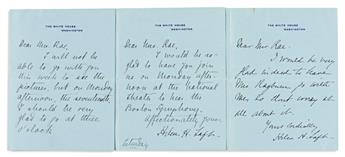 THE WHITE HOUSE
WASHINGTON
Dear Mrs. Rae,
I will not be
able to go with you
this week to see the
pictures, but on Monday
afternoon, the seventeenth,
I should be very
glad to go at three
o'clock
THE WHITE HOUSE
WASHINGTON
Dear Mrs. Rae,
I would be so
glad to have you join
me on Monday after-
noon at the National
Theater to hear the
Boston Symphony.
Affectionately yours
Helen H. Taft.
Saturday
THE WHITE HOUSE
WASHINGTON
Dear Mrs Rae.
I would be very
glad indeed to have
Mrs go with
me, so that
all about it.
Yours cordially,
Helen H. Taft.